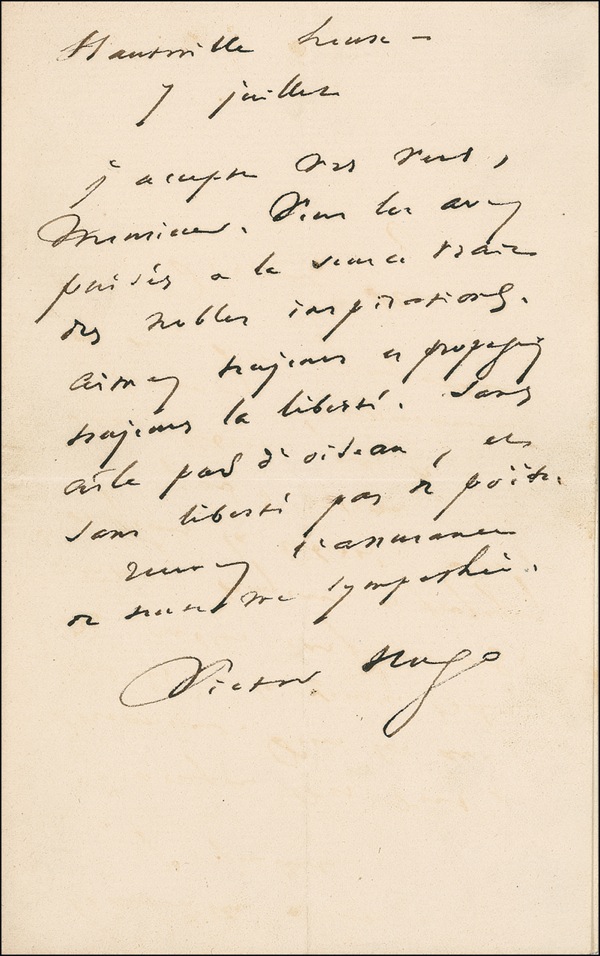 Hauteville house –
7 juillet
j'accepte vos vers,
Monsieur. Vous les avez
puisés à la source vraie
des nobles inspirations.
aimez toujours et propagez
toujours la liberté. Sans
aile pas d'oiseau, et
sans liberté pas de poëte.
recevez l'assurance
de toute ma sympathie.
Victor Hugo